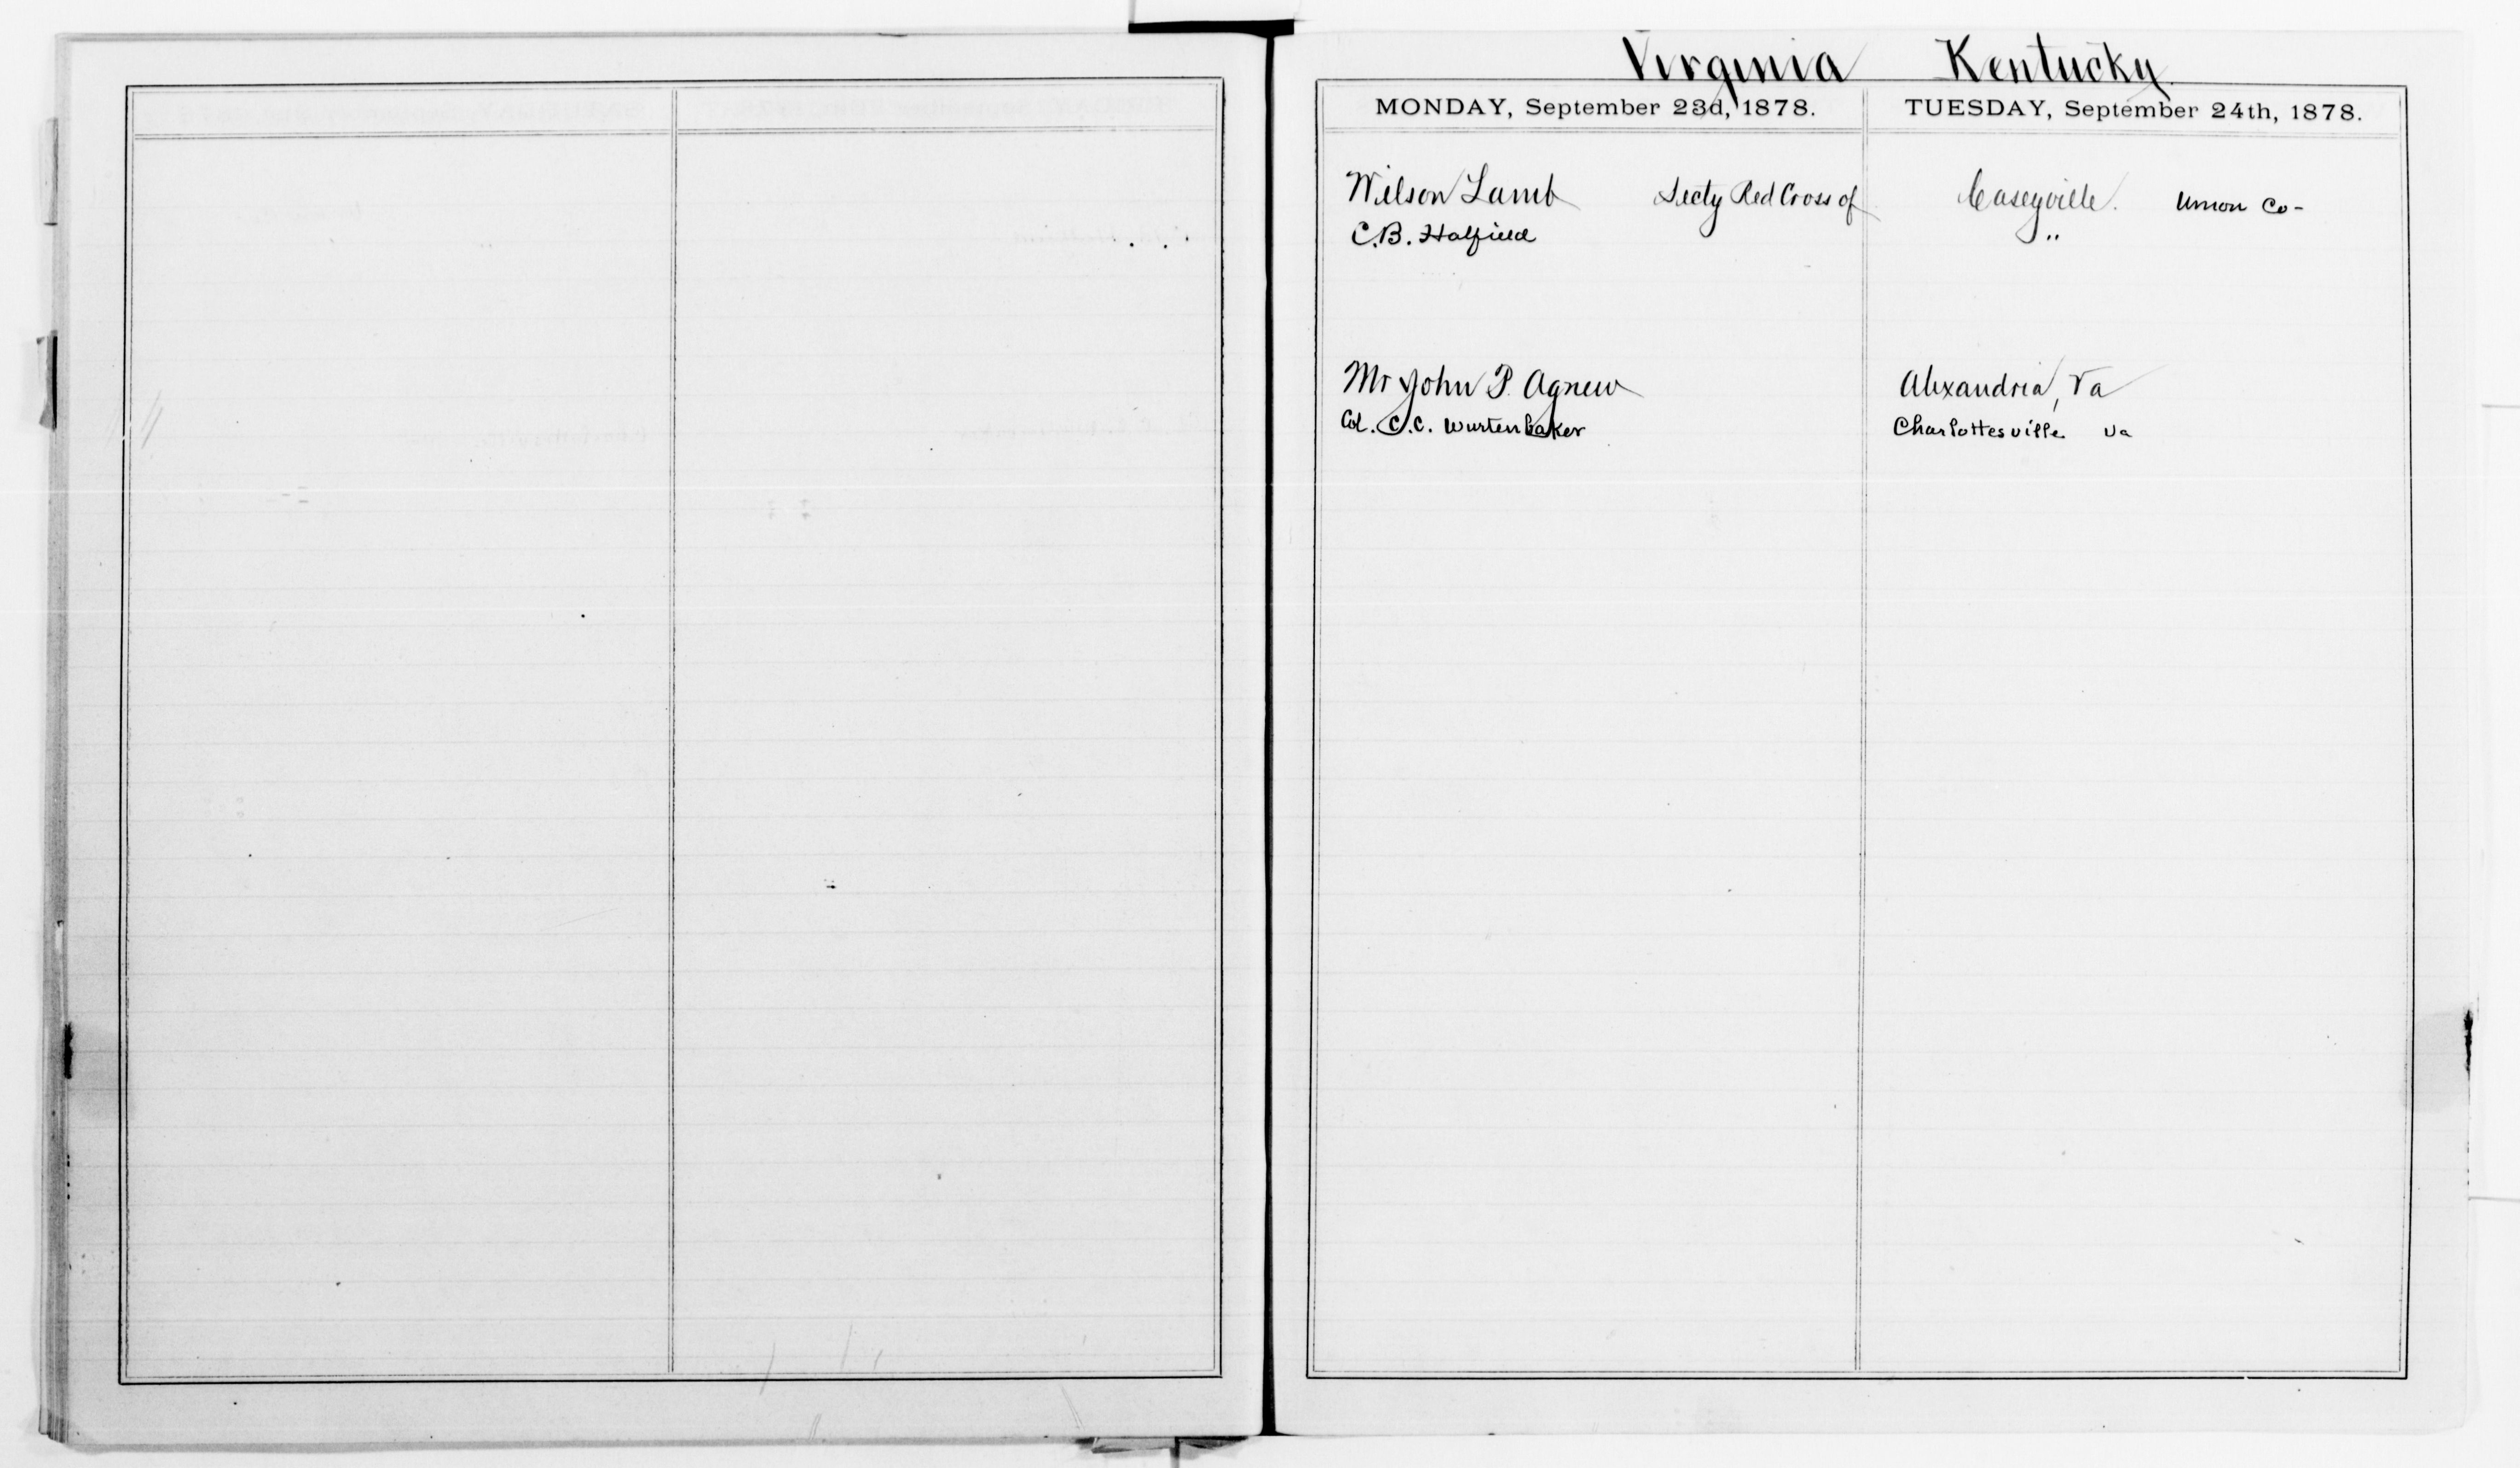 Virginia Kentucky
MONDAY, September 23d, 1878. TUESDAY, September 24th, 1878.
Wilson Lamb Secty Red Cross of Caseyville. Union Co-
C.B. Hatfield "
Mr John P. Agnew Alexandria, Va
Col. C.C. Wurtenbaker Charlottesville Va